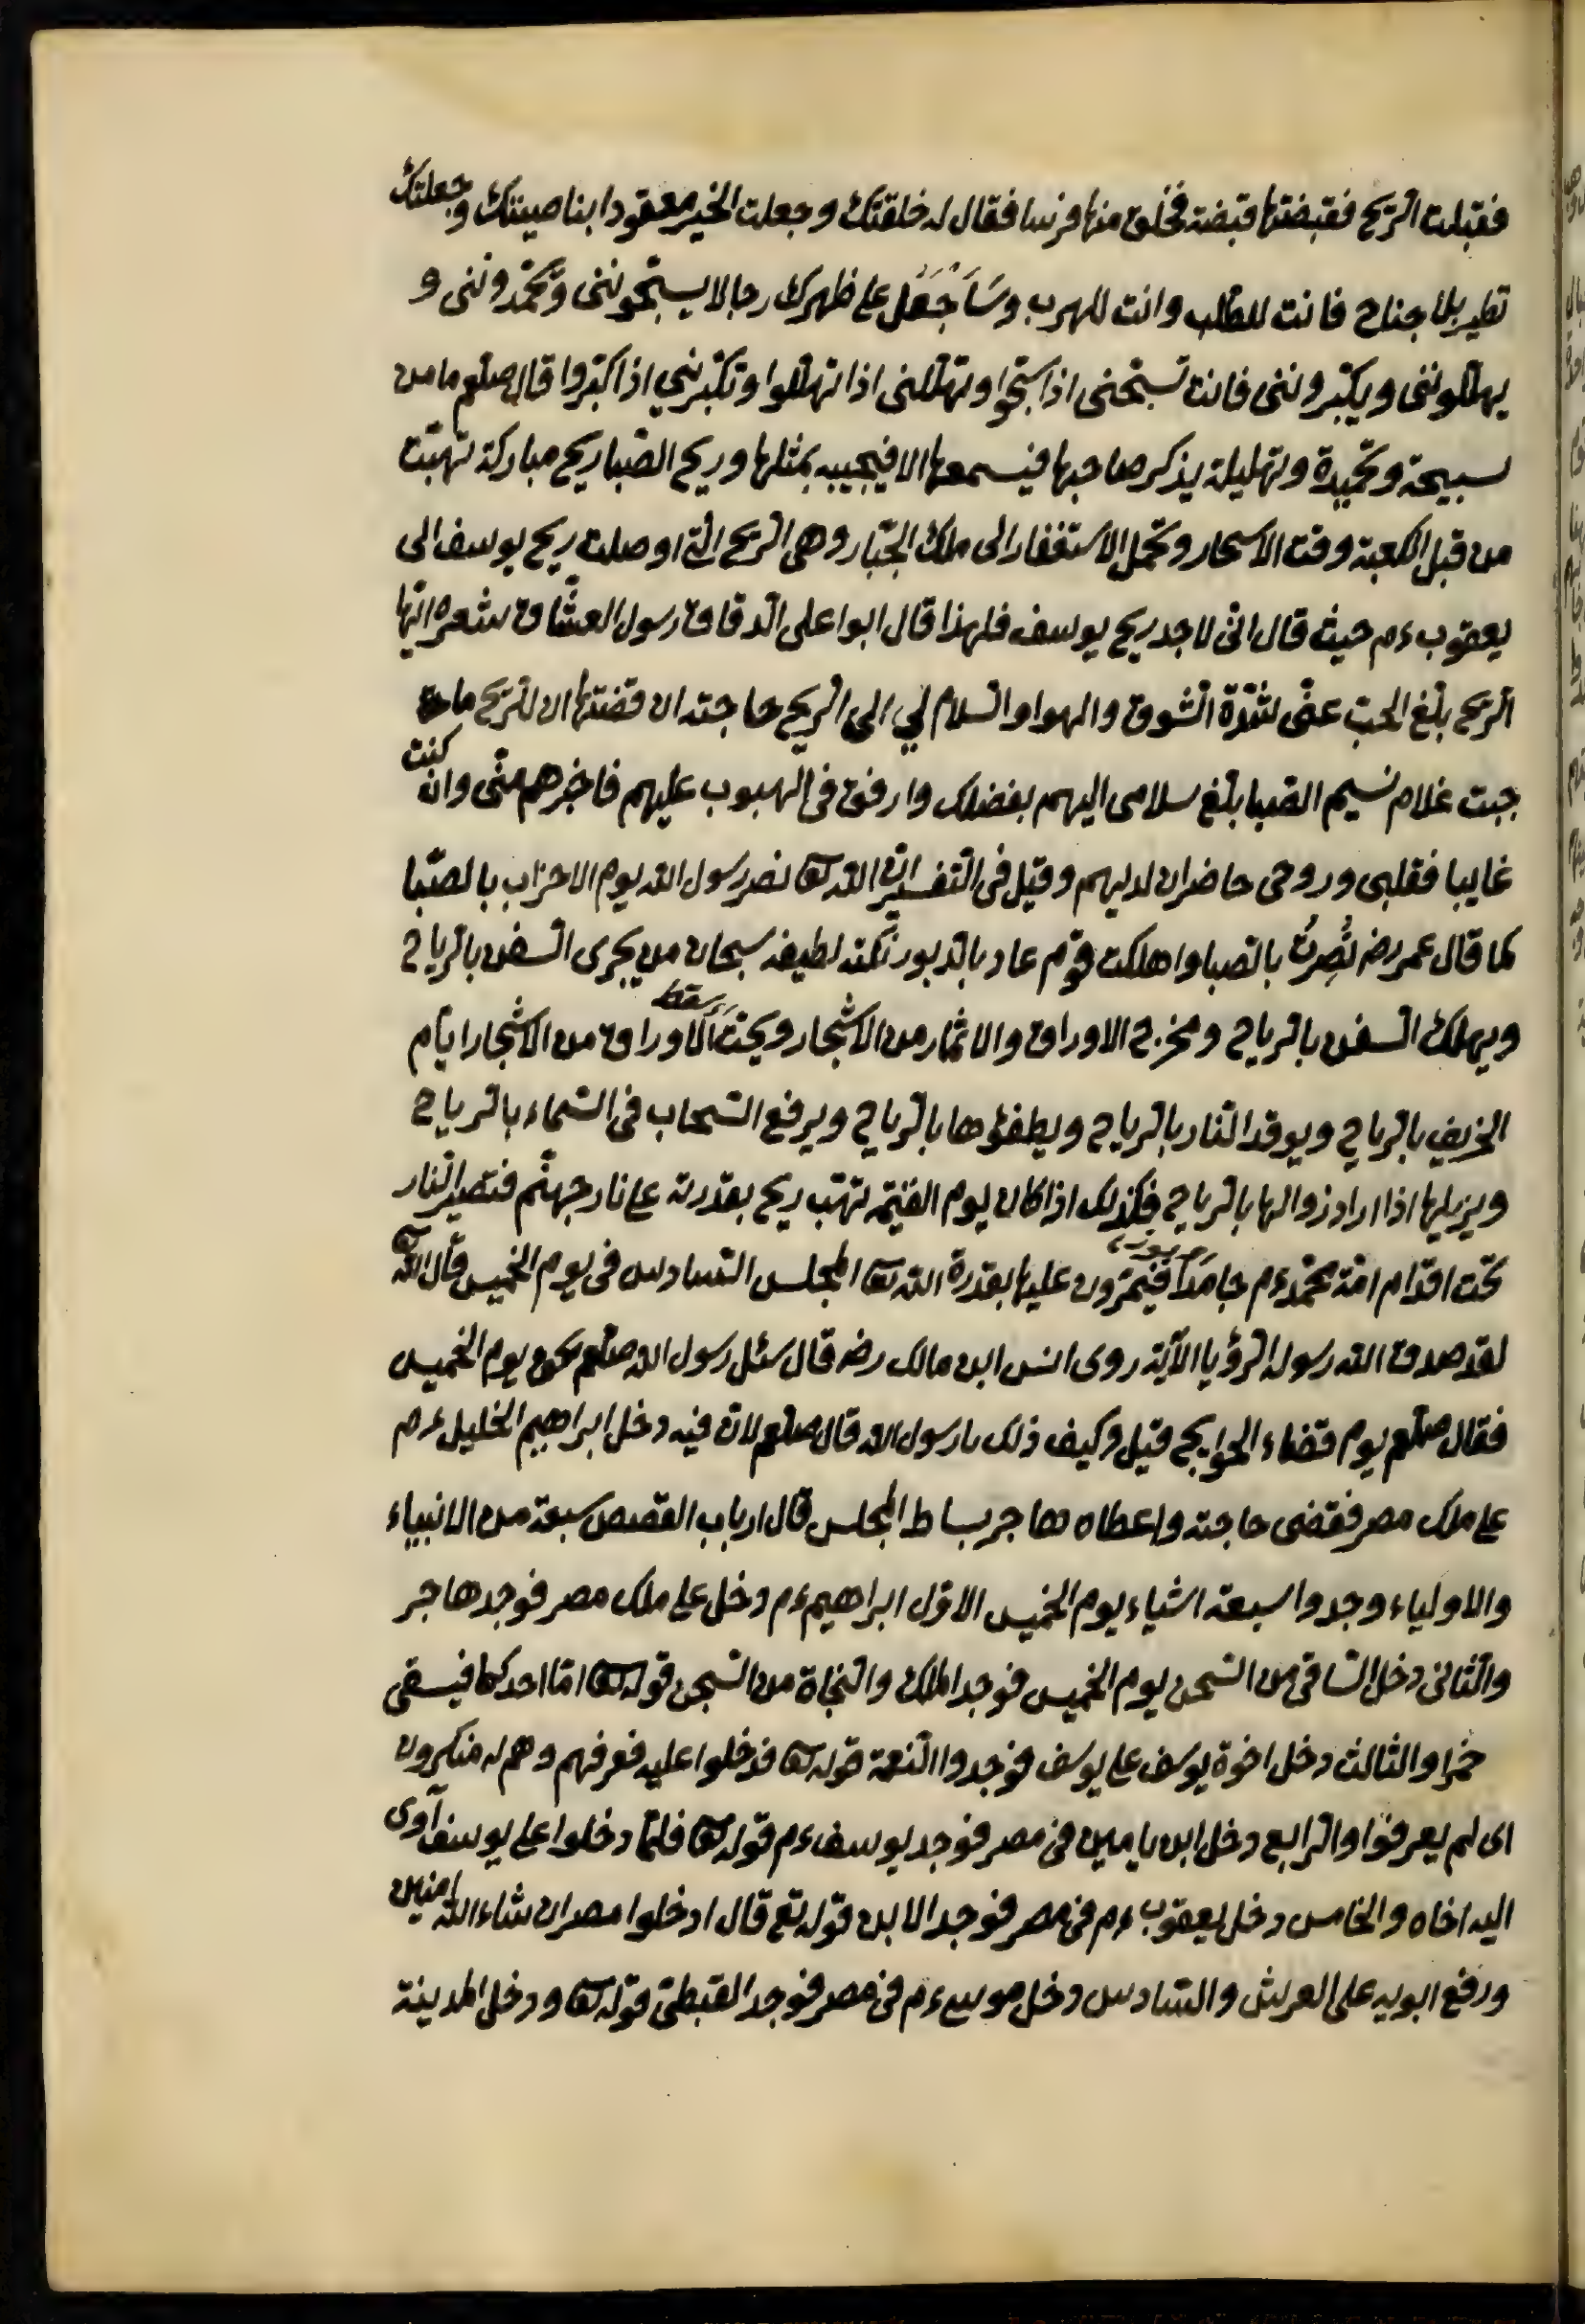 فقبلت الريح فقبضتها قبضة فخلق منها فرسا فقال له خلقتك وجعلت الخير معقودا بناصيتك وجعلتك
تطير بلا جناح فانت للطلب وانت للهرب وسَاَجْعَلُ على ظهرك رجالا يسبّحوننى وتحمّدوننى و
يهلّلوننى ويكبّروننى فانت تسبّحنى اذا سبّحوا وتهلّلنى اذا تهلّلوا وتكبّرنى اذا كبّروا قال صلعم ما من
سبيحة وتحميدة وتهليلة يذكر صاحبها فيسمعها الا فيجيبه بمثلها وريح الصّبا ريح مباركة تهبّت
من قبل الكعبة وقت الاسحار وتحمل الاستغفار الى ملك الجبّار وهى الرّيح الّتى اوصلت ريح يوسف الى
يعقوب ءم حيث قال انّى لاجد ريح يوسف فلهذا قال ابوا على الدّقاق رسول العشّاق شعره ايّها
الرّيح بلّغ الحبّ عنّى شدّة الشّوق والهوا والسّلام لي الى الرّيح حاجته ان قضتها ان للرّيح ما
جبت غلام نسيم الصّبا بلّغ سلامى اليهم بفضلك وارفق فى الهبوب عليهم فاخبرهم منّى وان كنت
غايبا فقلبى وروحى حاضران لديهم وقيل فى التّفسير انّ اللّه تعا نصر رسول اللّه يوم الاحزاب بالصّبا
كما قال عمر رضه نُصِرتُ بالصّبا واهلكت قوم عاد بالدّبور نكته لطيفه سبحان من يجرى السّفن بالرّياح
ويهلك السّفن بالرّياح ومخرج الاوراق والاثمار من الاشجار ويحتّ الاوراق من الاشجار ايّام
سقط
الخريف بالرّياح ويوقد النّار بالرّياح ويطفؤها بالرّياح ويرفع السّحاب فى السّماء بالرّياح
ويزيلها اذا اراد زوالها بالرّياح فكذلك اذا كان يوم القيٰمة تهبّ ريح بقدرته على نار جهنّم فتصير النّار
تحت اقدام امّة محمّد ءم جامدًا فيمرّون عليها بقدرة اللّه تعا المجلس السّادس فى يوم الخميس قال اللّه تعا
لقد صدق اللّه رسوله الرّؤيا الآية روى انس ابن مالك رضه قال سئل رسول اللّه صلعم عن يوم الخميس
فقال صلعم يوم قضاء الحوايج قيل وكيف ذلك يا رسول اللّه قال صلعم لانّ فيه دخل ابراهيم الخليل ءم
على ملك مصر فقضى حاجته واعطاه هاجر بساط المجلس قال ارباب القصص سبعة من الانبياء
والاولياء وجدوا سبعة اشياء يوم الخميس الاوّل ابراهيم ءم دخل على ملك مصر فوجد هاجر
والثّانى دخل السّاقى من السّجن يوم الخميس فوجد الملك والنّجاة من السّجن قوله تعا امّا احدكما فيسقى
خمرا والثالث دخل اخوة يوسف على يوسف فوجدوا النّعمة قوله تعا فدخلوا عليه فعرفهم وهم له منكرون
اى لم يعرفوا والرّابع دخل ابن يامين فى مصر فوجد يوسف ءم قوله تعا فلمّا دخلوا على يوسف آوى
اليه اخاه والخامس دخل يعقوب ءم فى مصر فوجد الابن قوله تع قال ادخلوا مصر ان شاء اللّه امنين
ورفع ابويه على العرش والسّادس دخل موسى ءم فى مصر فوجد القبطىّ قوله تعا ودخل المدينة